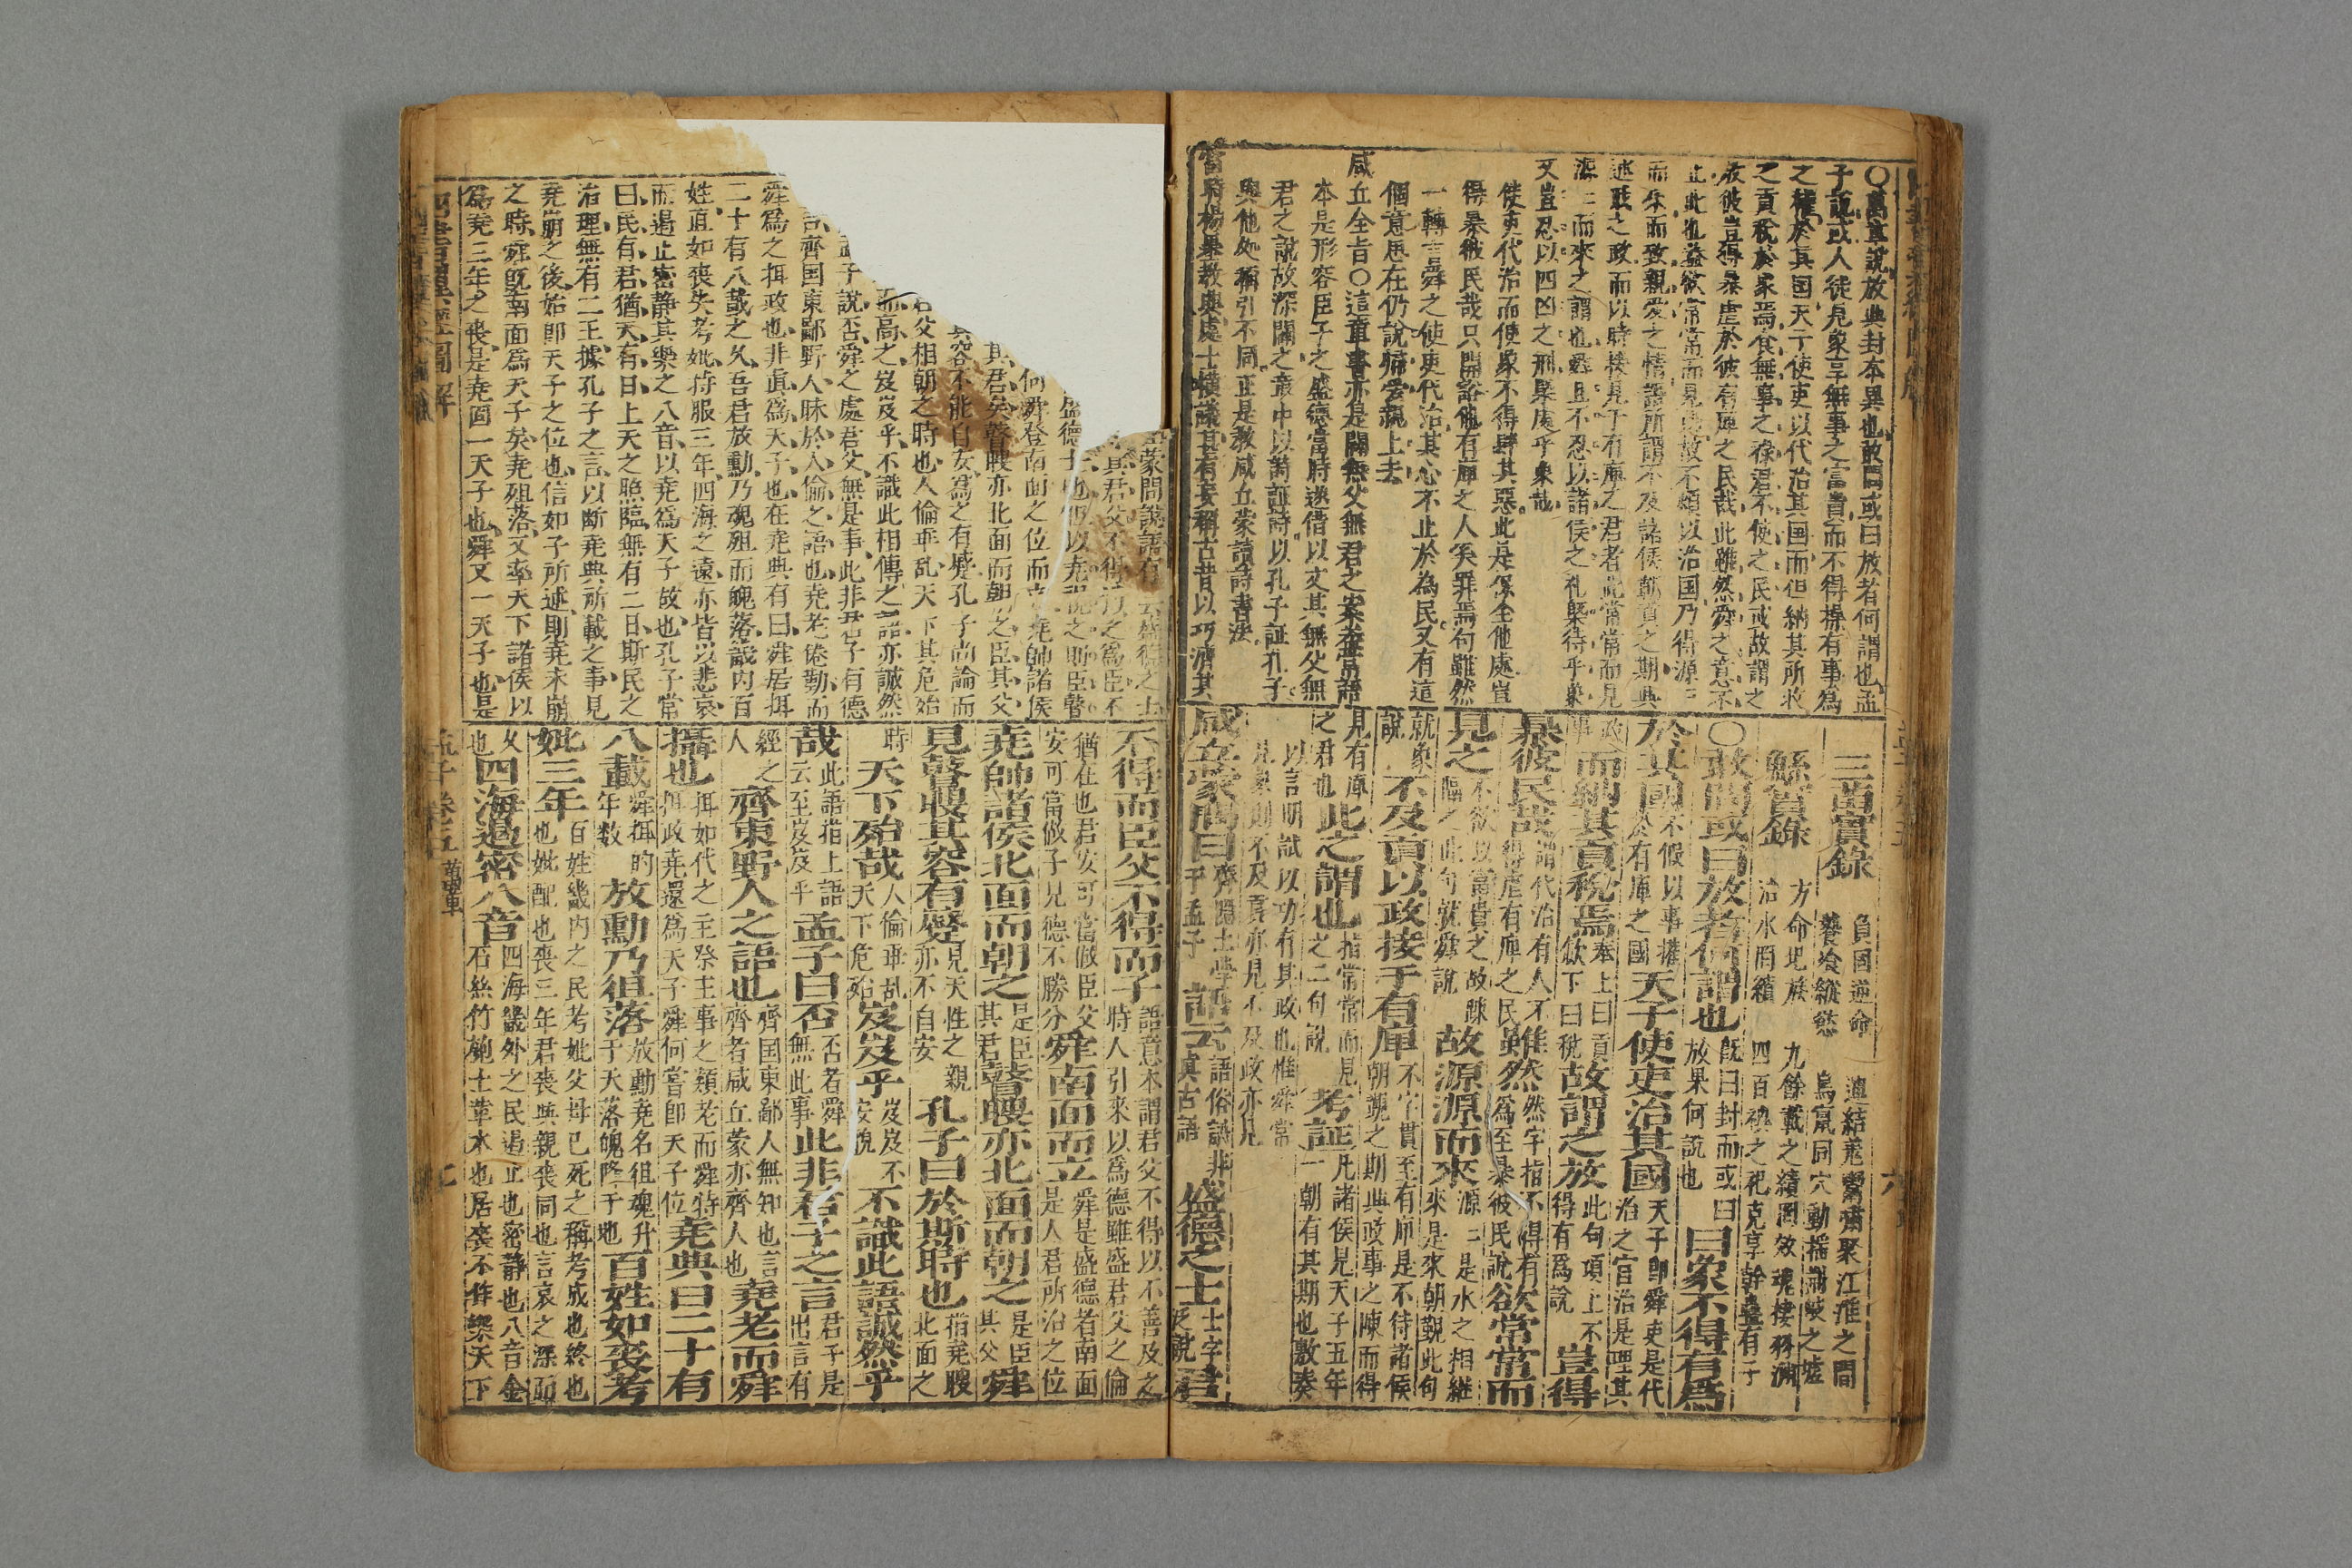 ○萬章說放與封本異也敢問或曰放者何謂也孟
子說或人徒見象享無事之富貴而不得操有事為
之權於其国天子使吏以代治其国而但納其所收
之貢稅於象焉食無事之祿君不使之民或故謂之
放彼豈得暴虐於彼有庳之民哉此雖然舜之意不
止此也益欲常常而見
而來而致親愛之情語所謂不及諸侯朝貢之期與
述職之政而以時接見于有庳之君者此常常而見
源二而來之謂也舜且不忍以諸侯之礼槩待乎象
又豈忍以四凶之刑槩處乎象哉
使吏代治而使象不得肆其惡此是保全他處豈
得暴彼民哉只開豁他有庳之人奚罪焉句雖然
一轉言舜之使吏代治其心不止於為民又有這
個意思在仍說歸愛親上去
咸丘全旨○這章書亦是闢無父無君之案盖當語
本是形容臣子之盛德當時遂借以文其無父無
君之說故深闢之章中以詩証詩以孔子証孔子
與他處稱引不同正是教咸丘蒙讀詩書法
當時楊墨教與處士橫議甚有妄稱古昔以巧濟其
三苗實錄 負固逆命 饕餮縱慾 烏鼠同穴動搖 聚江淮之間
鯀實錄 方命圮族 治水罔績 九餘載之績罔效 四百 之祀克享幹蠱有子
○敢問或曰放者何謂也 既曰封而或曰放果何說也 曰象不得有爲
於其國 不假以事權於有庳之國 天子使吏治其國 天子即舜吏是代治之官治是理其
政事 而納其貢稅焉 奉上曰貢歛下曰稅 故謂之放 此句項上不得有為說 豈得
暴彼民哉 謂代治有人不得虐有庳之民 雖然 然字指不得有為至暴彼民說 欲常常而
見之 不欲以富貴之故踈 此句就舜說 故源源而來 源二是水之相継來是來朝覲此句
就象說 不及貢以政接于有庳 不字貫至有庳是不待諸侯朝覲之期與政事之陳而得
見有庳之君也 此之謂也 指常常而見之二句說 考証 凡諸侯見天子五年一朝有其期也敷奏
以言明試以功有其政也惟舜常
見象則不及貢亦見不及政亦見
咸丘蒙問曰 齊隱士學于孟子 語云 語俗語非真古語 盛德之士 士字泛說 君
蒙問說語有云盛德之士
其君父不得
盛德士也恒以堯說之助臣瞽
何舜登南面之位而立堯帥諸侯
其君矣瞽瞍亦北面而朝之臣其父
其容不能自安為之有蹙孔子尚論而
君父相朝之時也人倫乖乱天下其危殆
而高之岌岌乎不識此相傳之語亦誠然
孟子說否舜之處君父無是事此非君子有德
言齊国東鄙野人昧於人倫之語也堯老倦勤而
舜爲之攝政也非眞爲天子也在堯典有曰舜居攝
二十有八載之久吾君放勳乃魂殂而魄落畿内百
姓直如喪失考妣持服三年四海之遠亦皆以悲哀
而遏止密靜其樂之八音以堯爲天子故也孔子常
曰民有君猶天有日上天之照臨無有二日斯民之
治理無有二王據孔子之言以断堯典所載之事見
堯崩之後始即天子之位也信如子所述則堯未崩
之時舜旣南面爲天子矣堯殂落又率天下諸侯以
爲堯三年之喪是堯固一天子也舜又一天子也是
不得而臣父不得而子 語意本謂君父不得以不善及之時人引來以爲德雖盛君父之倫
猶在也君安可當做臣父安可當做子見德不勝分 舜南面而立 舜是盛德者南面是人君所治之位
堯帥諸侯北面而朝之 是臣其君 瞽瞍亦北面而朝之 是臣其父 舜
見瞽瞍其容有蹙 見天性之親亦不自安 孔子曰於斯時也 指堯瞍北面之
時 天下殆哉 人倫乖乱天下危殆 岌岌乎 岌岌不安貌 不識此語誠然乎
哉 此語指上語云至岌岌乎 孟子曰否 否者舜無此事 此非君子之言 君子是出言有
經之人 齊東野人之語也 齊国東鄙人無知也言齊者咸丘蒙亦齊人也 堯老而舜
攝也 攝如代之主祭主事之類老而舜特攝政堯還爲天子舜何嘗即天子位 堯典曰二十有
八載 舜攝的年数 放勳乃徂落 放勳堯名徂魂升于天落魄降于地 百姓如喪考
妣三年 百姓畿内之民考妣父母已死之稱考成也終也妣配也喪三年君喪與親喪同也言哀之深而
久也 四海遏密八音 四海畿外之民遏止也密静也八音金石絲竹匏土革木也居喪不作樂天下
四書 經圖解
孟子 卷五 萬章
七
六